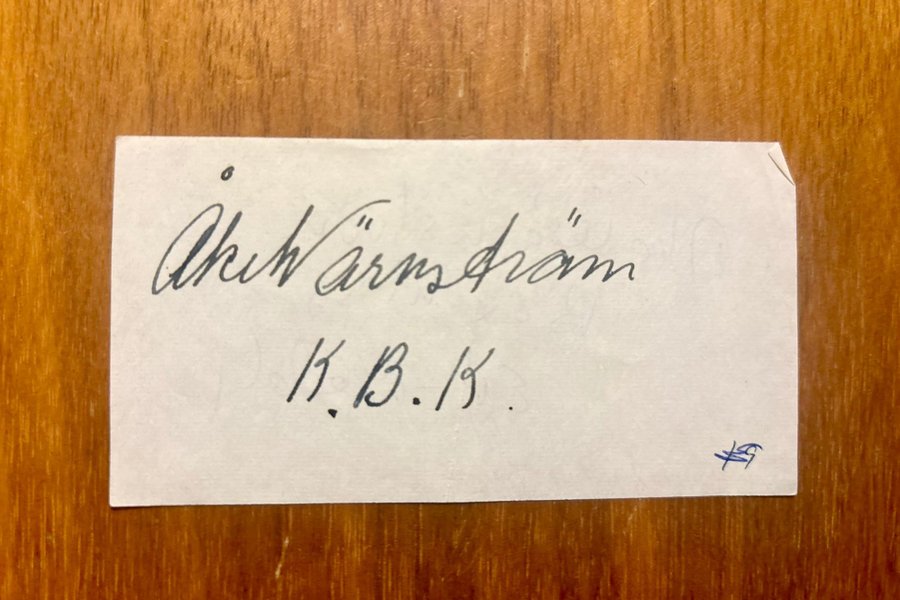 Åke Wärnström
K.B.K.